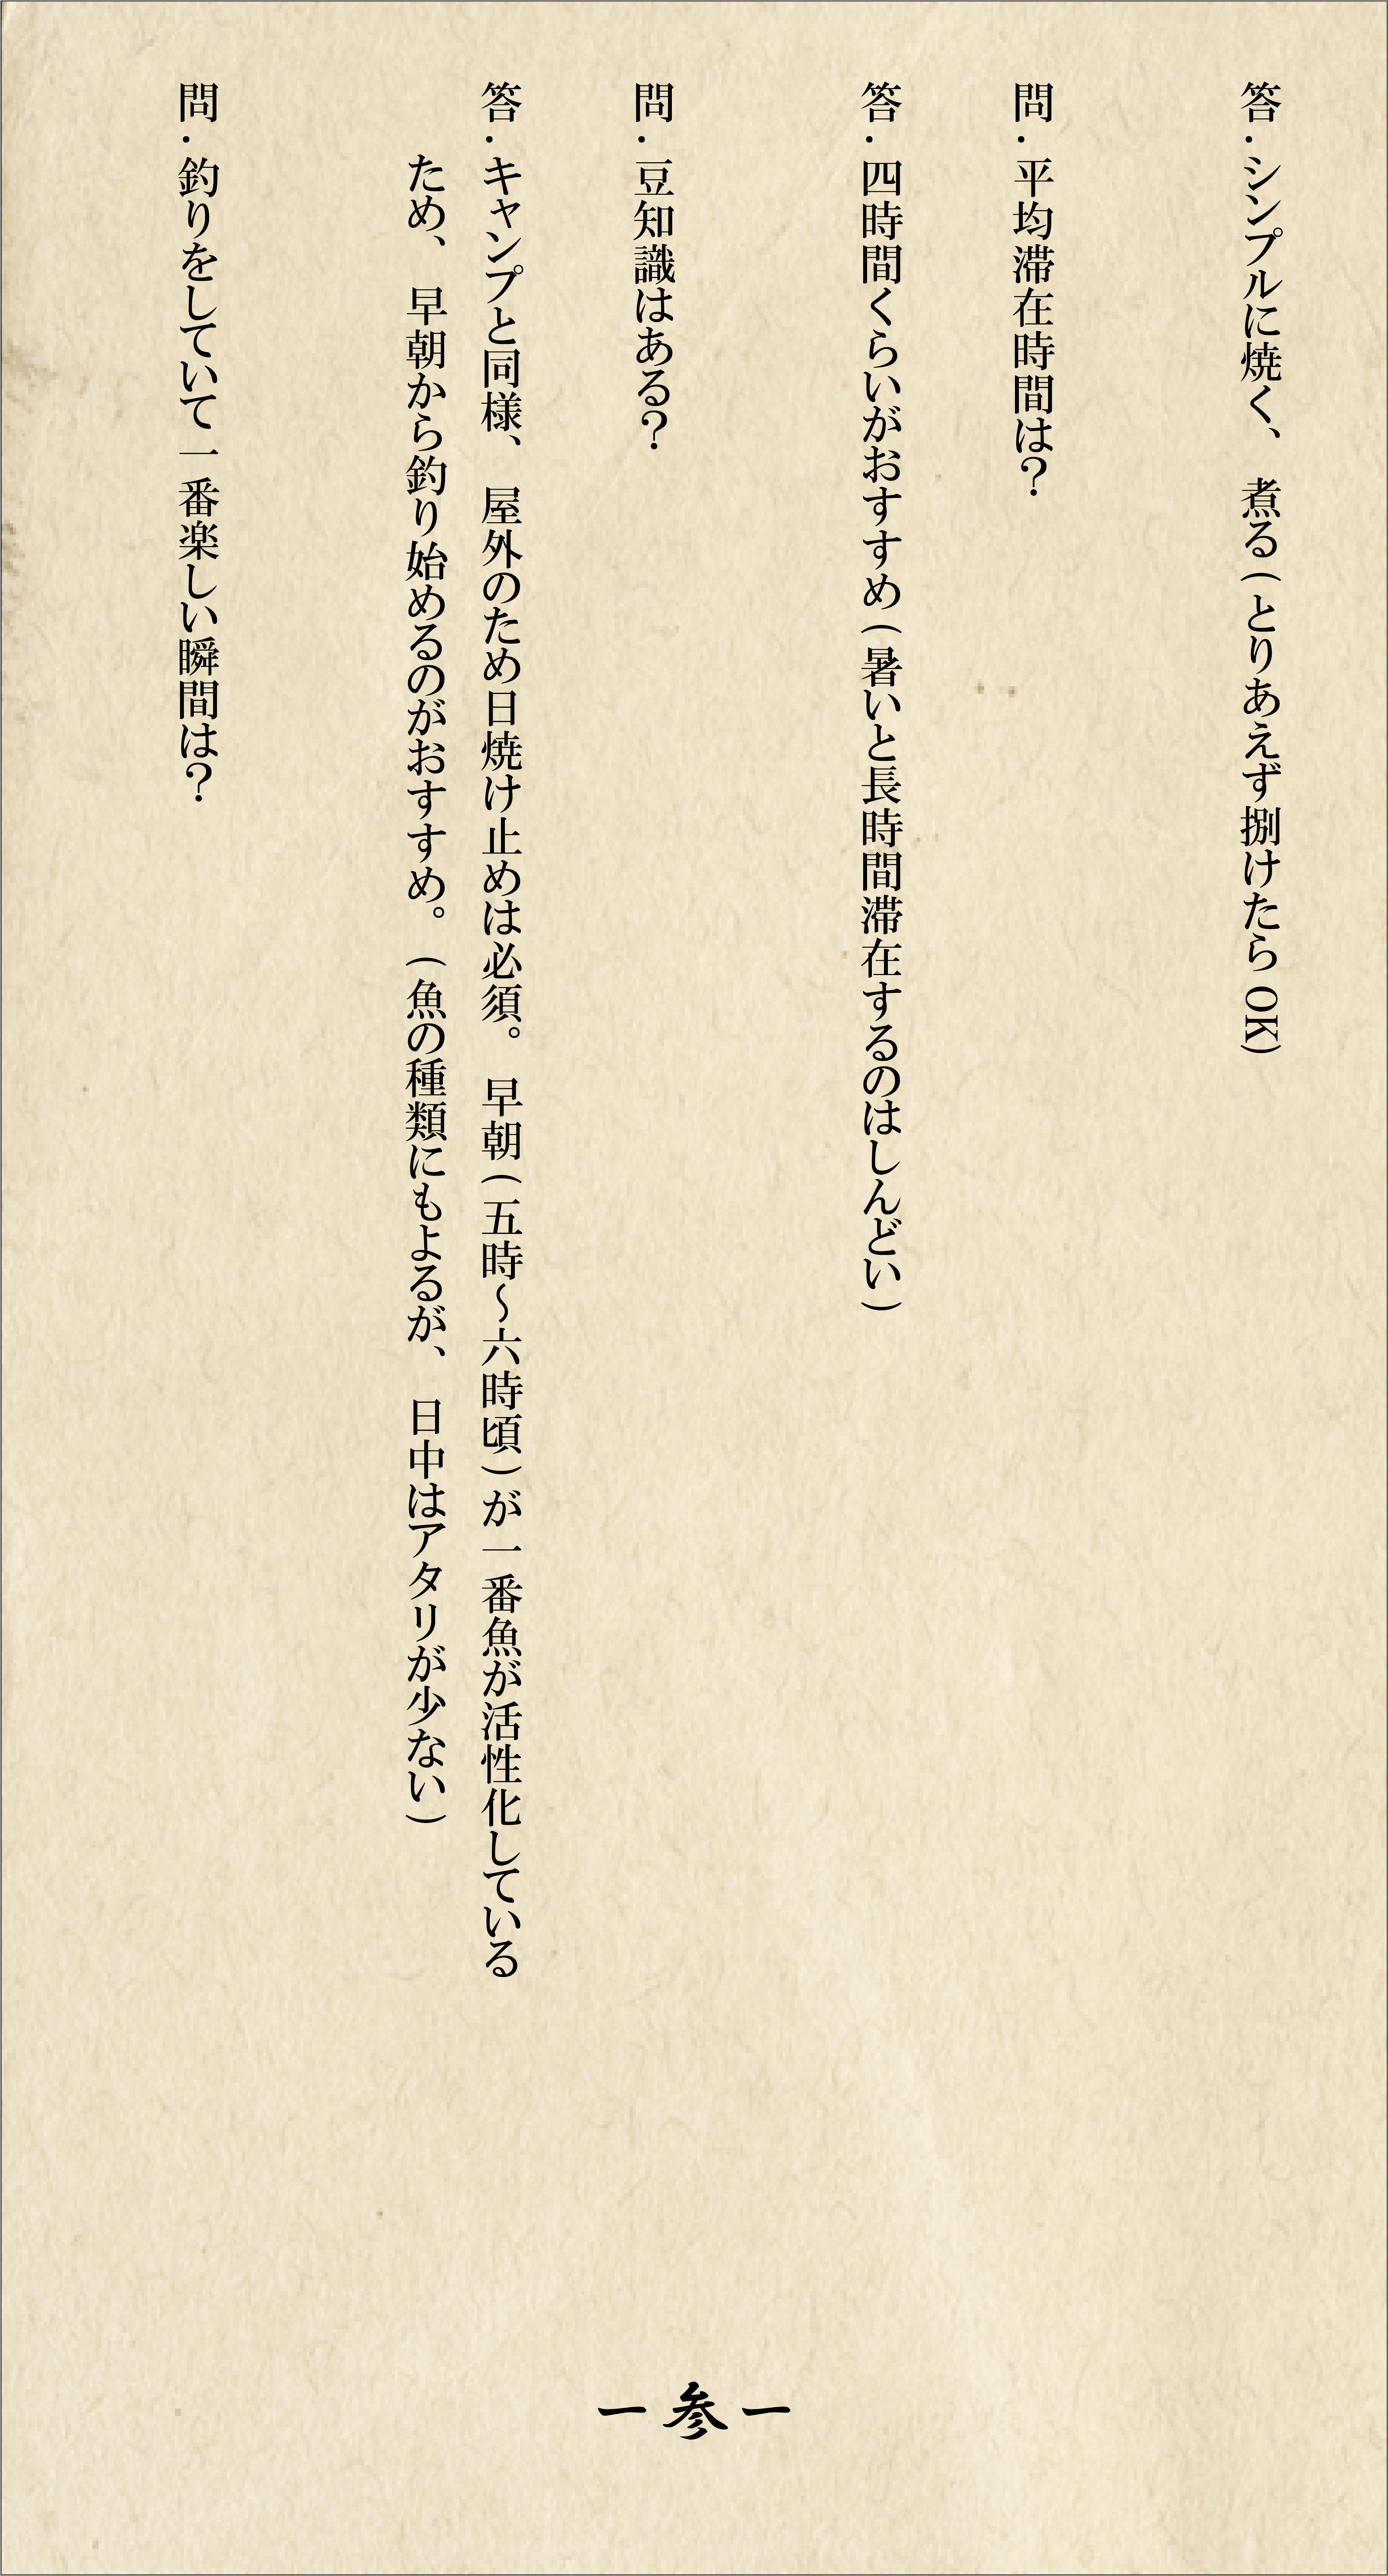 答．シンプルに焼く、煮る（とりあえず捌けたらOK)
問．平均滞在時間は？
答．四時間くらいがおすすめ（暑いと長時間滞在するのはしんどい）
問．豆知識はある？
答．キャンプと同様、屋外のため日焼け止めは必須。早朝（五時～六時頃）が一番魚が活性化している
ため、早朝から釣り始めるのがおすすめ。（魚の種類にもよるが、日中はアタリが少ない）
問．釣りをしていて一番楽しい瞬間は？
ー参ー